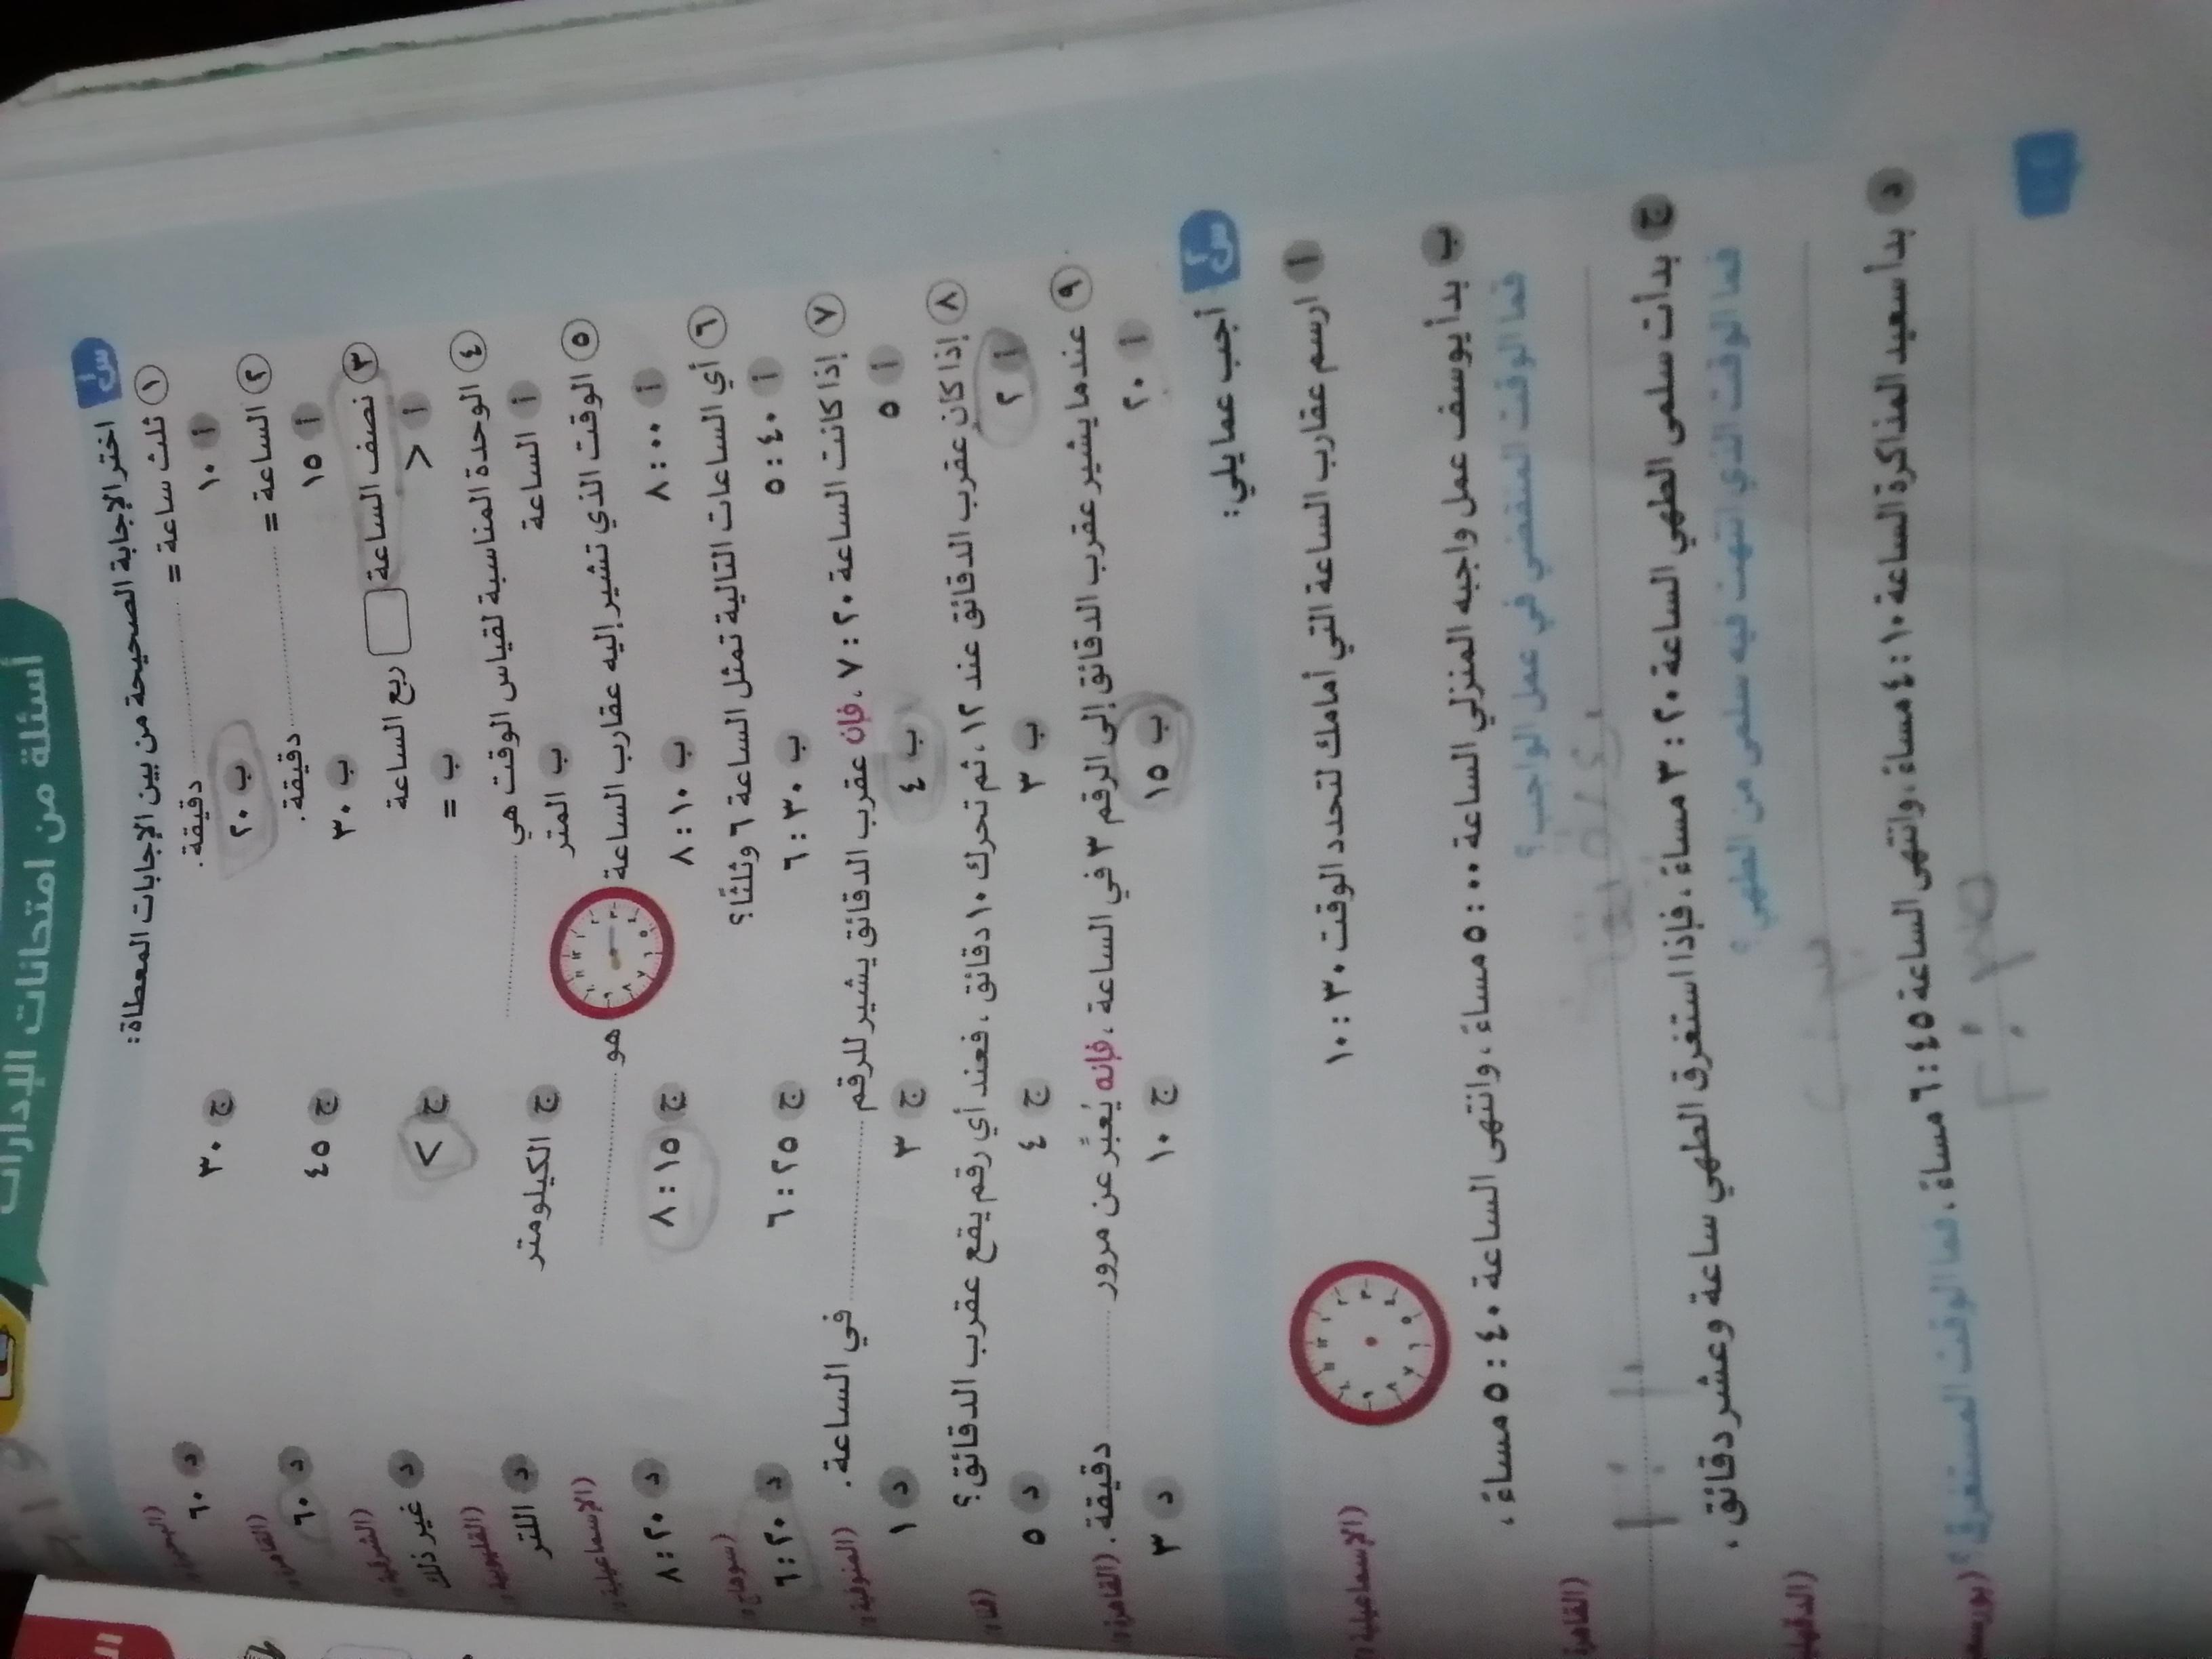 أسئلة من امتحانات الإدارات
س١ اختر الإجابة الصحيحة من بين الإجابات المعطاة:
١ ثلث ساعة = .......... دقيقة.
أ ١٠ ب ٢٠ ج ٣٠ د ٦٠
٢ الساعة = .......... دقيقة. (القاهرة
أ ١٥ ب ٣٠ ج ٤٥ د ٦٠
٣ نصف الساعة ربع الساعة (الشرقية
أ > ب = ج < د غير ذلك
٤ الوحدة المناسبة لقياس الوقت هي .......... (القليوبية
أ الساعة ب المتر ج الكيلومتر د اللتر
٥ الوقت الذي تشير إليه عقارب الساعة هو .......... (الإسماعيلية
أ ٨:٠٠ ب ٨:١٠ ج ٨:١٥ د ٨:٢٠
٦ أي الساعات التالية تمثل الساعة ٦ وثلثًا؟ (سوهاج
أ ٥:٤٠ ب ٦:٣٠ ج ٦:٢٥ د ٦:٢٠
٧ إذا كانت الساعة ٧:٢٠، فإن عقرب الدقائق يشير للرقم .......... في الساعة. (المنوفية
أ ٥ ب ٤ ج ٣ د ١
٨ إذا كان عقرب الدقائق عند ١٢، ثم تحرك ١٠ دقائق، فعند أي رقم يقع عقرب الدقائق؟ (قنا
أ ٢ ب ٣ ج ٤ د ٥
٩ عندما يشير عقرب الدقائق إلى الرقم ٣ في الساعة، فإنه يُعبِّر عن مرور .......... دقيقة. (القاهرة
أ ٢٠ ب ١٥ ج ١٠ د ٣
س٢ أجب عما يلي:
أ ارسم عقارب الساعة التي أمامك لتحدد الوقت ١٠:٣٠ (الإسماعيلية
ب بدأ يوسف عمل واجبه المنزلي الساعة ٥:٠٠ مساءً، وانتهى الساعة ٥:٤٠ مساءً،
فما الوقت المنقضي في عمل الواجب؟ (القاهرة
ج بدأت سلمى الطهي الساعة ٣:٢٠ مساءً، فإذا استغرق الطهي ساعة وعشر دقائق،
فما الوقت الذي انتهت فيه سلمى من الطهي؟
د بدأ سعيد المذاكرة الساعة ٤:١٠ مساءً، وانتهى الساعة ٦:٤٥ مساءً، فما الوقت المستغرق؟